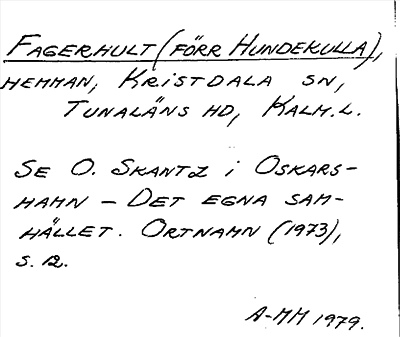 FAGERHULT (FÖRR HUNDEKULLA),
HEMMAN, KRISTDALA SN,
TUNALÄNS HD, KALM. L.
SE O. SKANTZ i OSKARS-
HAMN – DET EGNA SAM-
HÄLLET. ORTNAMN (1973),
S. 12.
A-MM 1979.